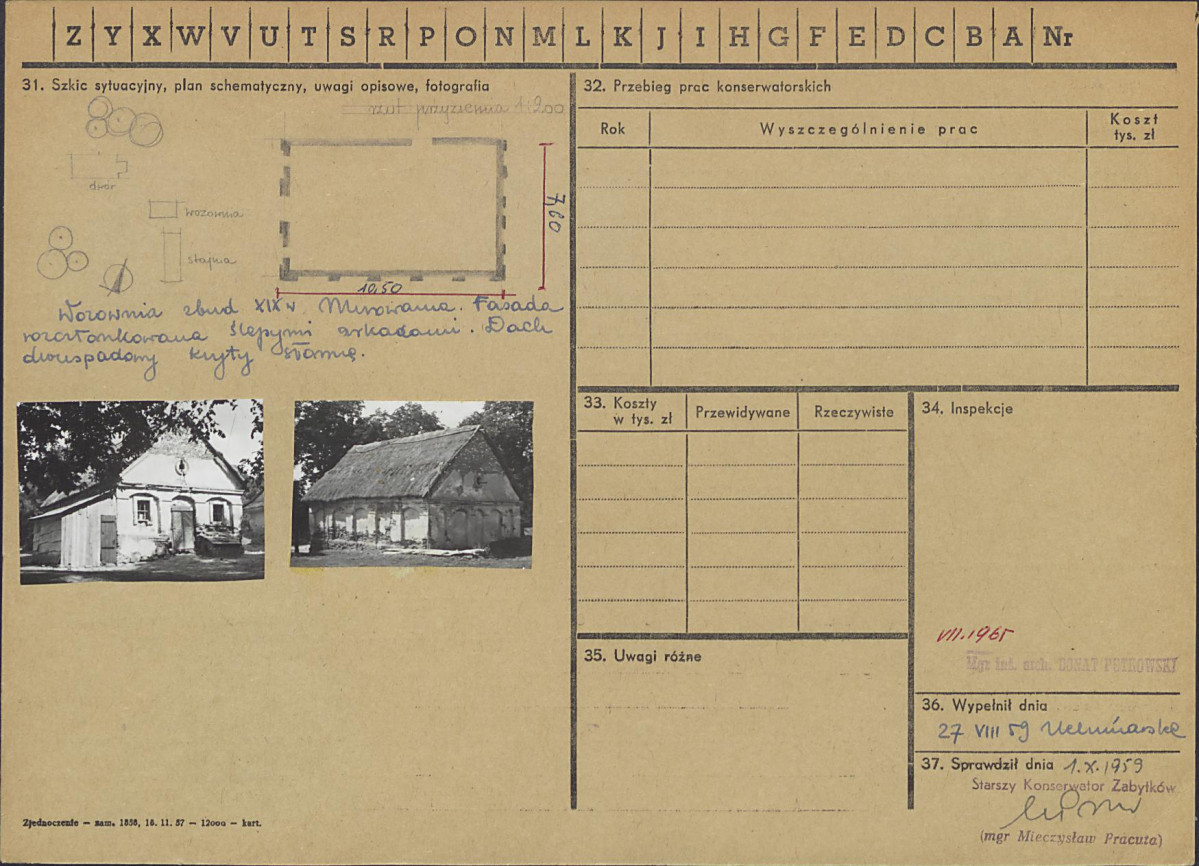 Z Y X W V U T S R P O N M L K J I H G F E D C B A Nr
31. Szkic sytuacyjny, plan schematyczny, uwagi opisowe, fotografia
rzut przyziemia 1:200
dwór
wozownia
stajnia
7,60
10.50
Wozownia zbud XIX w Murowana. Fasada
rozczłonkowana ślepymi arkadami. Dach
dwuspadowy kryty słomą.
Zjednoczenie — zam. 1856, 16. 11. 57 — 12000 — kart.
32. Przebieg prac konserwatorskich
Rok
Wyszczególnienie prac
Koszt
tys. zł
33. Koszty
w tys. zł
Przewidywane
Rzeczywiste
34. Inspekcje
VII.1965
Mgr inż. arch. DONAT PETROWSKI
35. Uwagi różne
36. Wypełnił dnia
27 VIII 59
37. Sprawdził dnia 1.X.1959
Starszy Konserwator Zabytków
(mgr Mieczysław Pracuta)